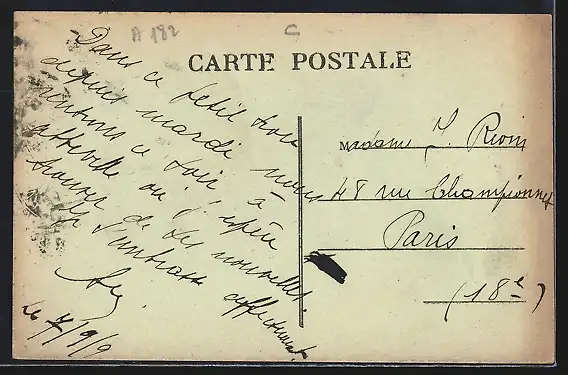 A 182
C
CARTE POSTALE
Dans ce petit trou
depuis mardi nous
rentrons ce soir à
où j'espère
trouver de tes nouvelles.
Je t'embrasse affectueusement
Le 7/9/9
Madame J. Rivin
48 rue Championnet
Paris
(18e)